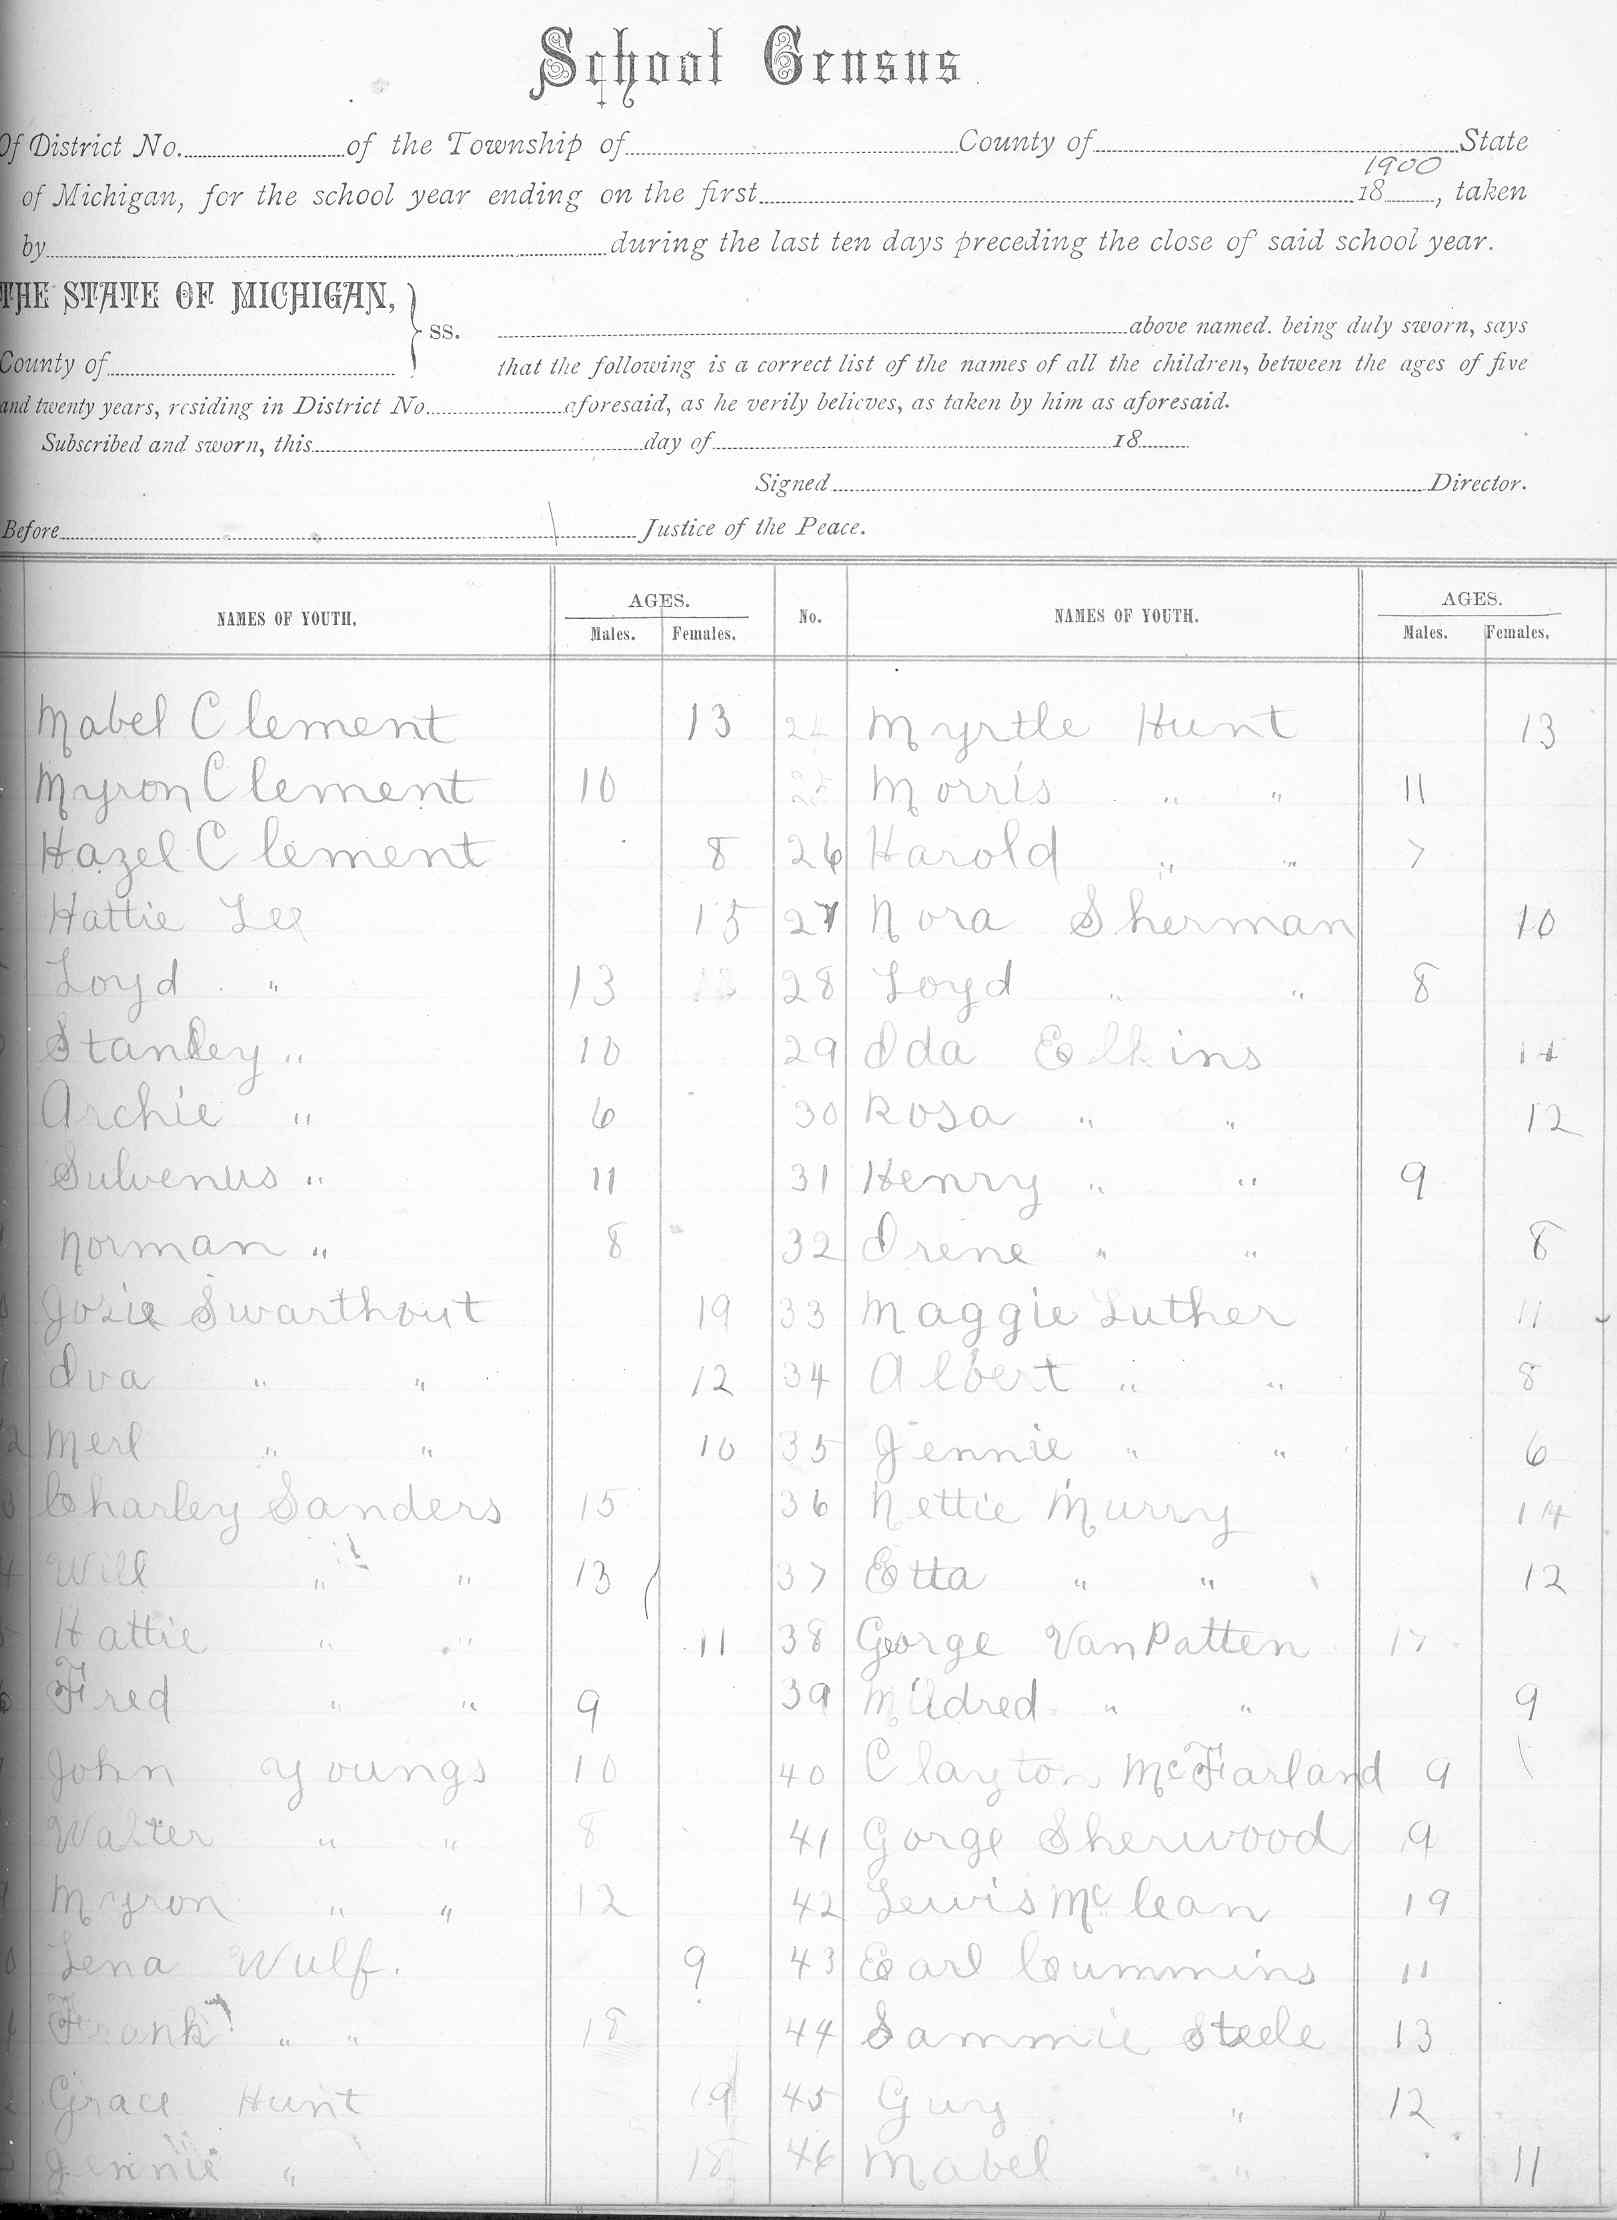 School Census
Of District No. of the Township of County of State
1900
of Michigan, for the school year ending on the first 18 , taken
by during the last ten days preceding the close of said school year.
THE STATE OF MICHIGAN,
ss. above named. being duly sworn, says
County of that the following is a correct list of the names of all the children, between the ages of five
and twenty years, residing in District No. aforesaid, as he verily believes, as taken by him as aforesaid.
Subscribed and sworn, this day of 18
Signed Director.
Before Justice of the Peace.
NAMES OF YOUTH. AGES. No. NAMES OF YOUTH. AGES.
Males. Females. Males. Females.
Mabel Clement 13 24 Myrtle Hunt 13
Myron Clement 10 25 Morris " " 11
Hazel Clement 8 26 Harold " " 7
Hattie Lee 15 27 Nora Sherman 10
Loyd " 13 28 Loyd " " 8
Stanley " 10 29 Ida Elkins 14
Archie " 6 30 Rosa " " 12
Sulvenus " 11 31 Henry " " 9
Norman " 8 32 Irene " " 8
Josie Swarthout 19 33 Maggie Luther 11
Iva " " 12 34 Albert " " 8
12 Merl " " 10 35 Jennie " " 6
3 Charley Sanders 15 36 Nettie Murry 14
4 Will " " 13 37 Etta " " 12
5 Hattie " " 11 38 George VanPatten 17
6 Fred " " 9 39 Mildred " " 9
John Youngs 10 40 Clayton McFarland 9
Walter " " 8 41 Gorge Sherwood 9
Myron " " 12 42 Lewis McLean 19
0 Lena Wulf. 9 43 Earl Cummins 11
Frank " " 18 44 Sammie Steele 13
Grace Hunt 19 45 Guy " 12
Jennie " 18 46 Mabel " 11